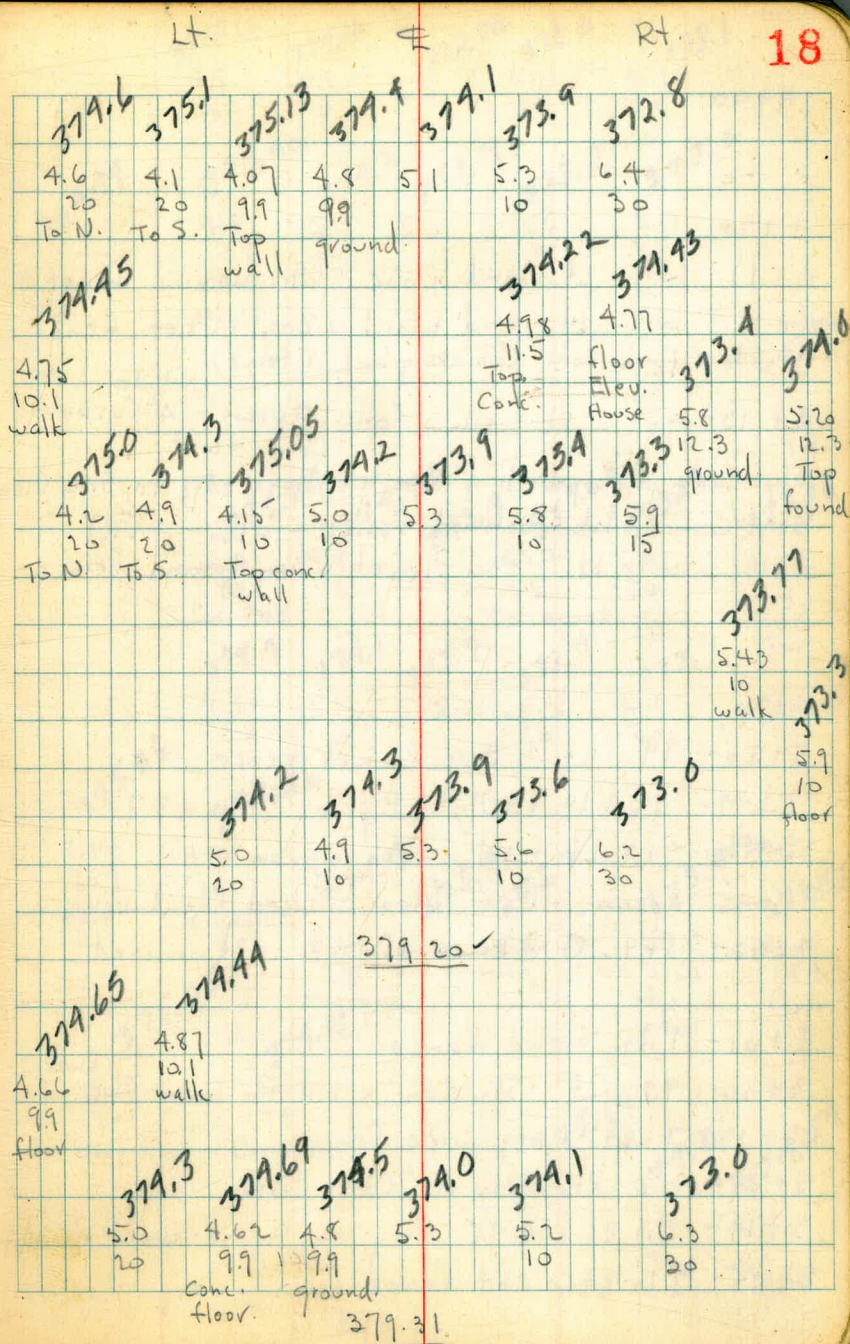 Lt. ℄ Rt. 18
374.6 375.1 375.13 374.4 374.1 373.9 372.8
4.6 4.1 4.07 4.8 5.1 5.3 6.4
20 20 9.9 9.9 10 30
To N. To S. Top ground.
wall
374.22 374.43
374.45
4.98 4.77
11.5 floor 373.4 374.0
4.75 Top Elev.
10.1 Conc. House 5.8 5.20
walk 12.3 12.3
ground Top
found
375.0 374.3 375.05 374.2 373.9 373.4 373.3
4.2 4.9 4.15 5.0 5.3 5.8 5.9
20 20 10 10 10 15
To N. To S. Top conc.
wall
373.77
5.43
10
walk
373.3
5.9
10
floor
374.2 374.3 373.9 373.6 373.0
5.0 4.9 5.3 5.6 6.2
20 10 10 30
379.20 ✓
374.65 374.44
4.87
10.1
walk
4.66
9.9
floor
374.3 374.69 374.5 374.0 374.1 373.0
5.0 4.62 4.8 5.3 5.2 6.3
20 9.9 9.9 10 30
Conc. ground.
floor.
379.31